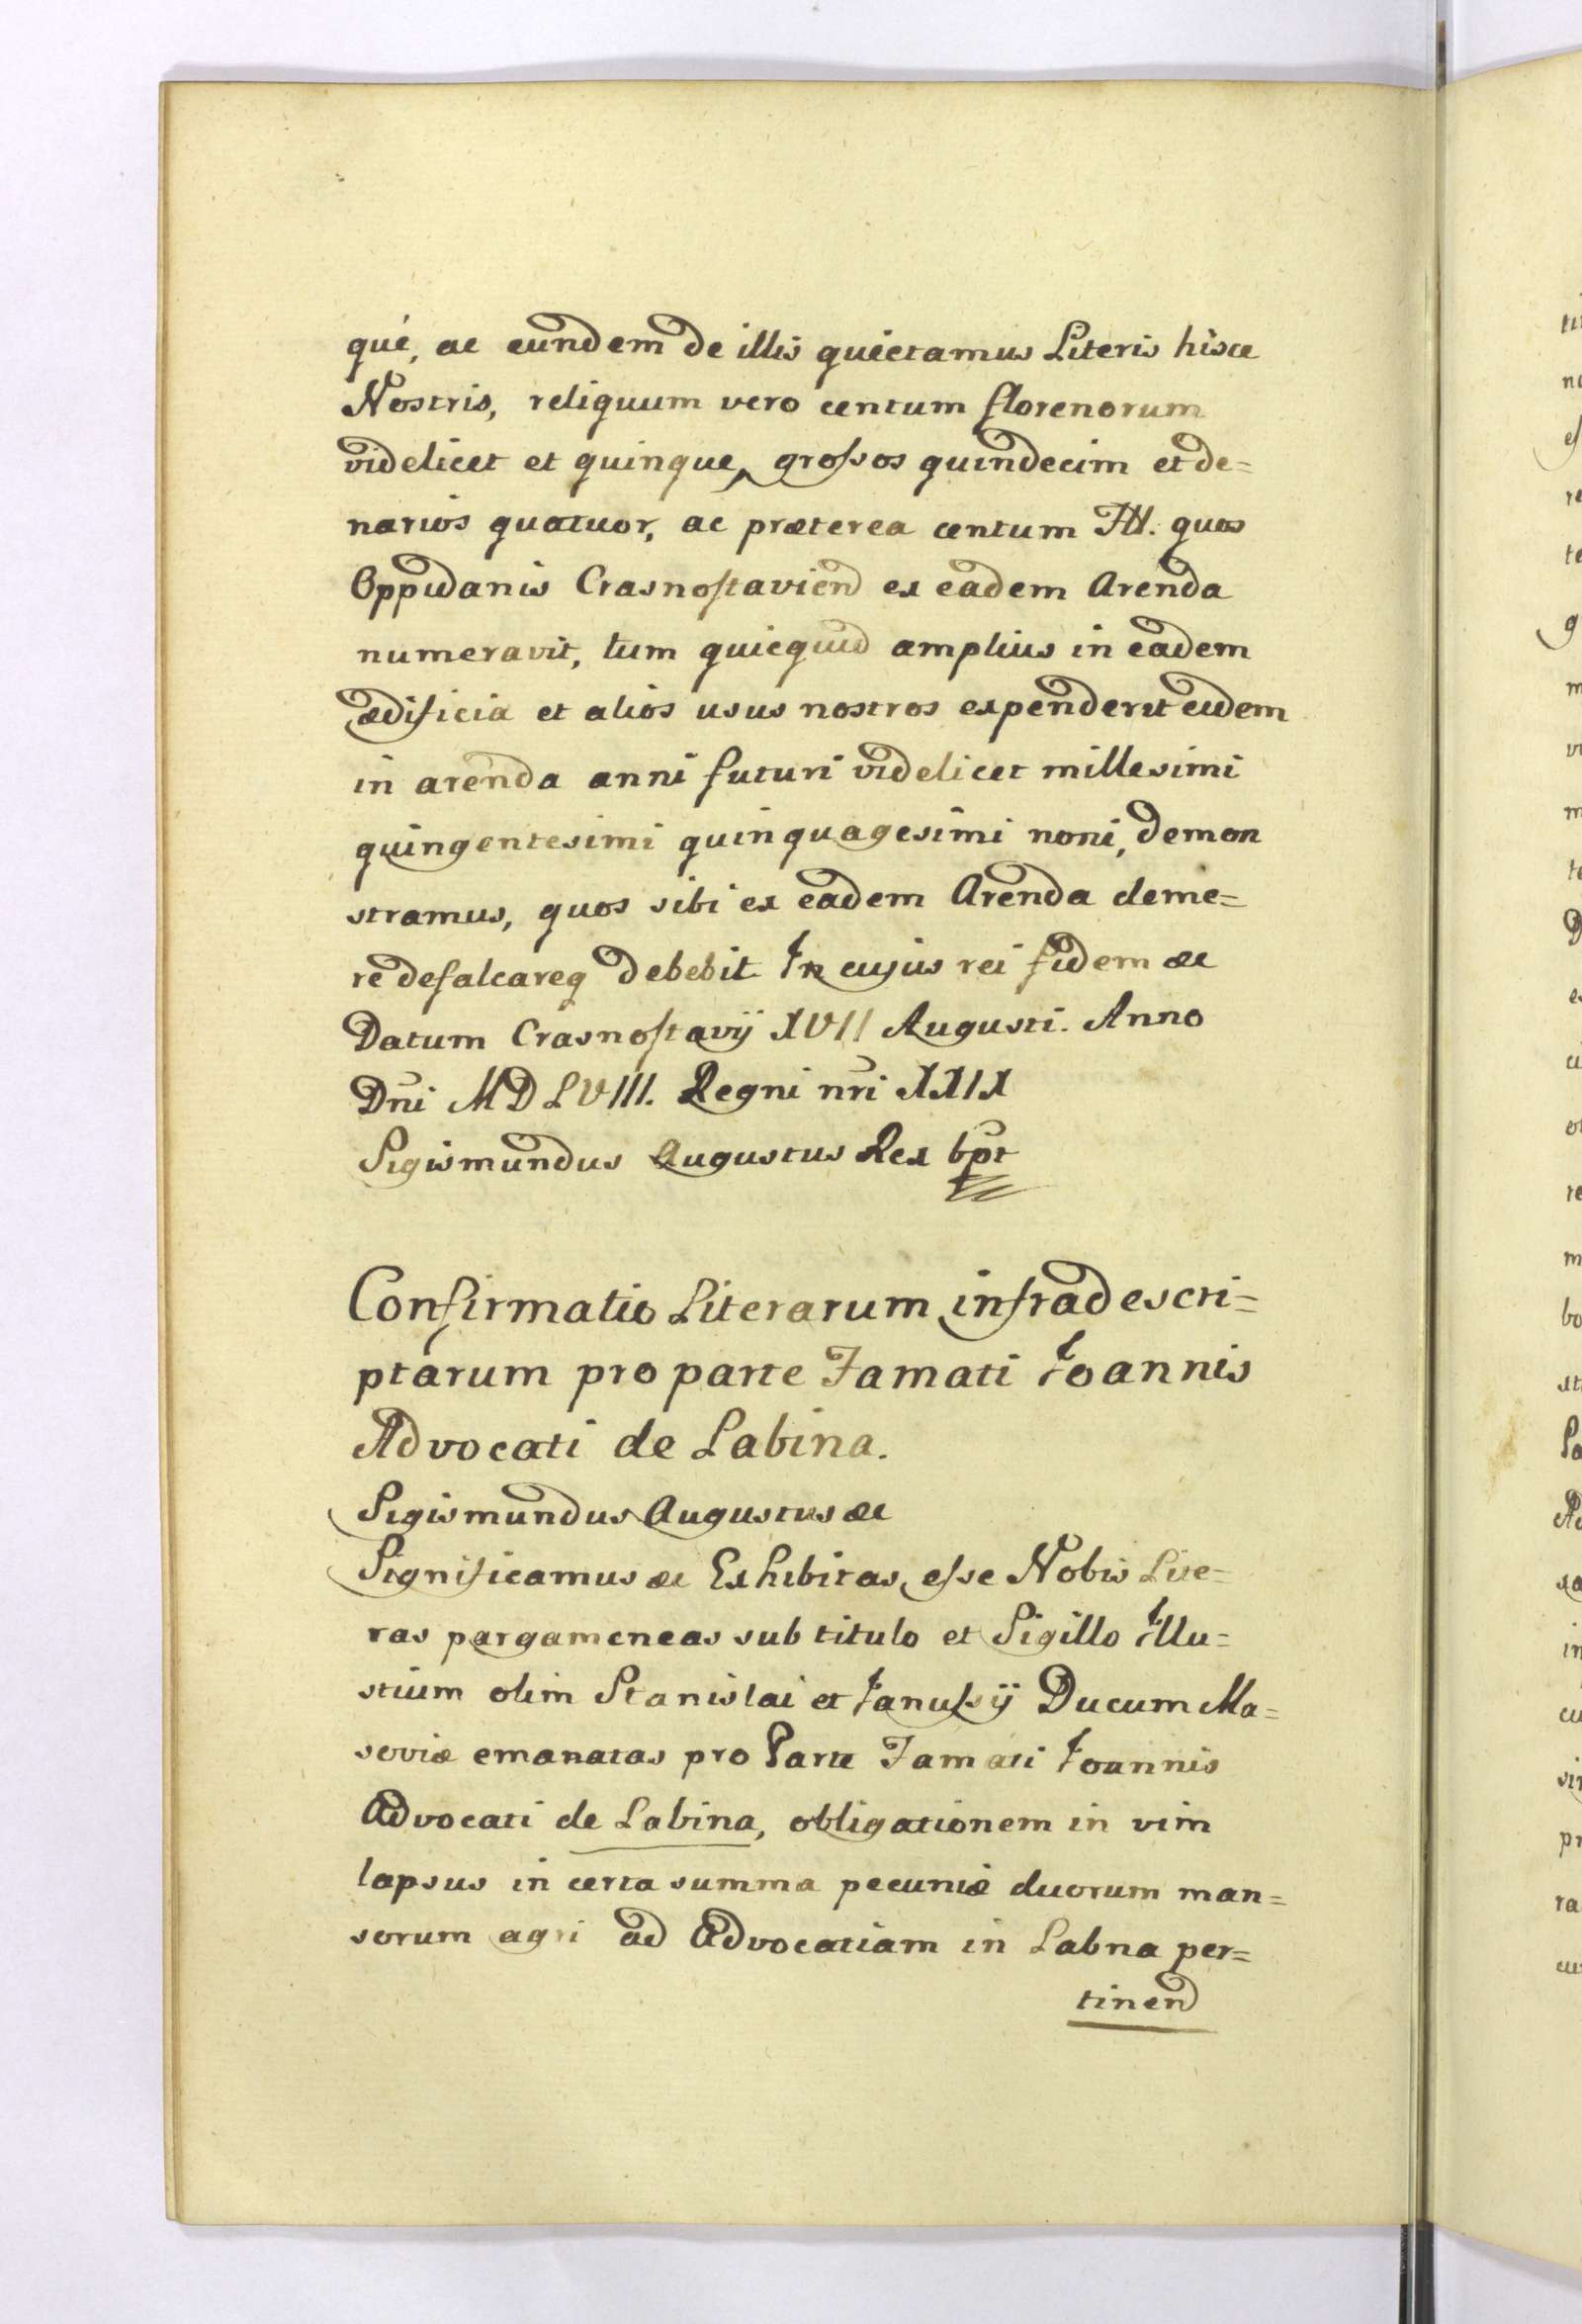 qué, ac eundem de illis quietamus Literis hisce
Nostris, reliquum vero centum florenorum
videlicet et quinque, grossos quindecim et de=
narios quatuor, ac præterea centum Fll. quos
Oppidanis Crasnostaviend ex eadem Arenda
numeravit, tum quicquid amplius in eadem
ædificia et alios usus nostros expenderit eidem
in arenda anni futuri videlicet millesimi
quingentesimi quinquagesimi noni, demon
stramus, quos sibi ex eadem Arenda deme=
re defalcareq debebit In cujus rei fidem &c
Datum Crasnostavij XVII Augusti. Anno
Dni MDLVIII. Regni nri XXIX
Sigismundus Augustus Rex
Confirmatio Literarum infradescri=
ptarum pro parte Famati Joannis
Advocati de Labina.
Sigismundus Augustus &c
Significamus &c Exhibitas esse Nobis Lite=
ras pargameneas sub titulo et Sigillo Illu=
stium olim Stanislai et Janussij Ducum Ma=
soviæ emanatas pro Parte Famati Joannis
Advocati de Labina, obligationem in vim
lapsus in certa summa pecuniæ duorum man=
sorum agri ad Advocatiam in Labna per=
tinend